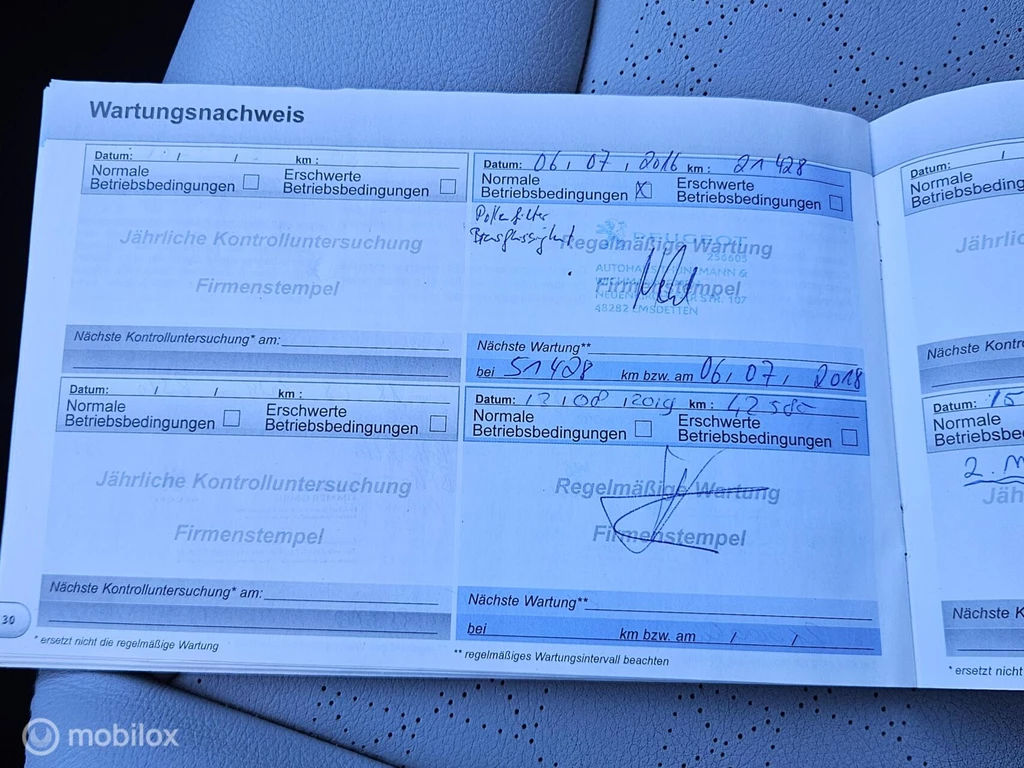 Wartungsnachweis
Datum: / / km :
Normale Betriebsbedingungen
Erschwerte Betriebsbedingungen
Jährliche Kontrolluntersuchung
Firmenstempel
Nächste Kontrolluntersuchung* am:
Datum: 06, 07, 2016 km : 21 428
Normale Betriebsbedingungen X
Erschwerte Betriebsbedingungen
Pollenfilter
Bremsflüssigkeit
Regelmäßige Wartung
PEUGEOT
Firmenstempel
48282 EMSDETTEN
Nächste Wartung**
bei 51 428 km bzw. am 06, 07, 2018
Datum: / / km :
Normale Betriebsbedingungen
Erschwerte Betriebsbedingungen
Jährliche Kontrolluntersuchung
Firmenstempel
Nächste Kontrolluntersuchung* am:
Datum: 12,08,2019 km :
Normale Betriebsbedingungen
Erschwerte Betriebsbedingungen
Regelmäßige Wartung
Firmenstempel
Nächste Wartung**
bei km bzw. am / /
30
* ersetzt nicht die regelmäßige Wartung
** regelmäßiges Wartungsintervall beachten
Datum: 15
Normale
2.
Nächste K
* ersetzt nicht
mobilox